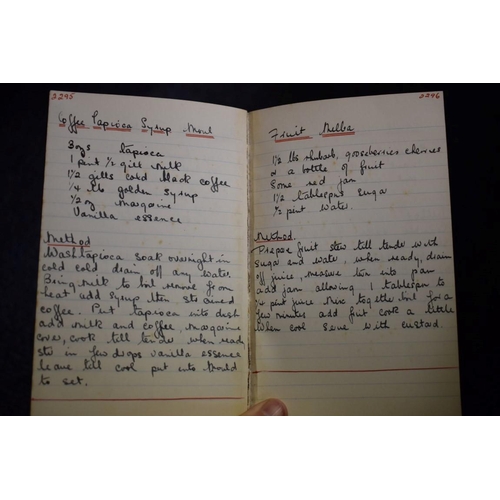 2295
Coffee Tapioca Syrup Moul
3ozs tapioca
1 pint 1/2 gill milk
1 1/2 gills cold black coffee
1/4 lb golden syrup
1/2 oz margaine
Vanilla essence
Method
Wash tapioca soak overnight in
cold cold drain off any water.
Bring milk to boil remove from
heat add syrup then strained
coffee. Put tapioca into dish
add milk and coffee, margaine
cover, cook till tender when ready
stir in few drops vanilla essence
leave till cool put into mould
to set.
2296
Fruit Melba
1 1/2 lbs rhubarb, gooseberries cherries
or a bottle of fruit
Some red jam
1 1/2 tablespns sugar
1/2 pint water.
Method.
Prepare fruit stew till tender with
sugar and water, when ready, drain
off juice, measure turn into pan
add jam allowing 1 tablespn to
pint juice Mix together boil for a
few minutes add fruit cook a little
When cool serve with custard.